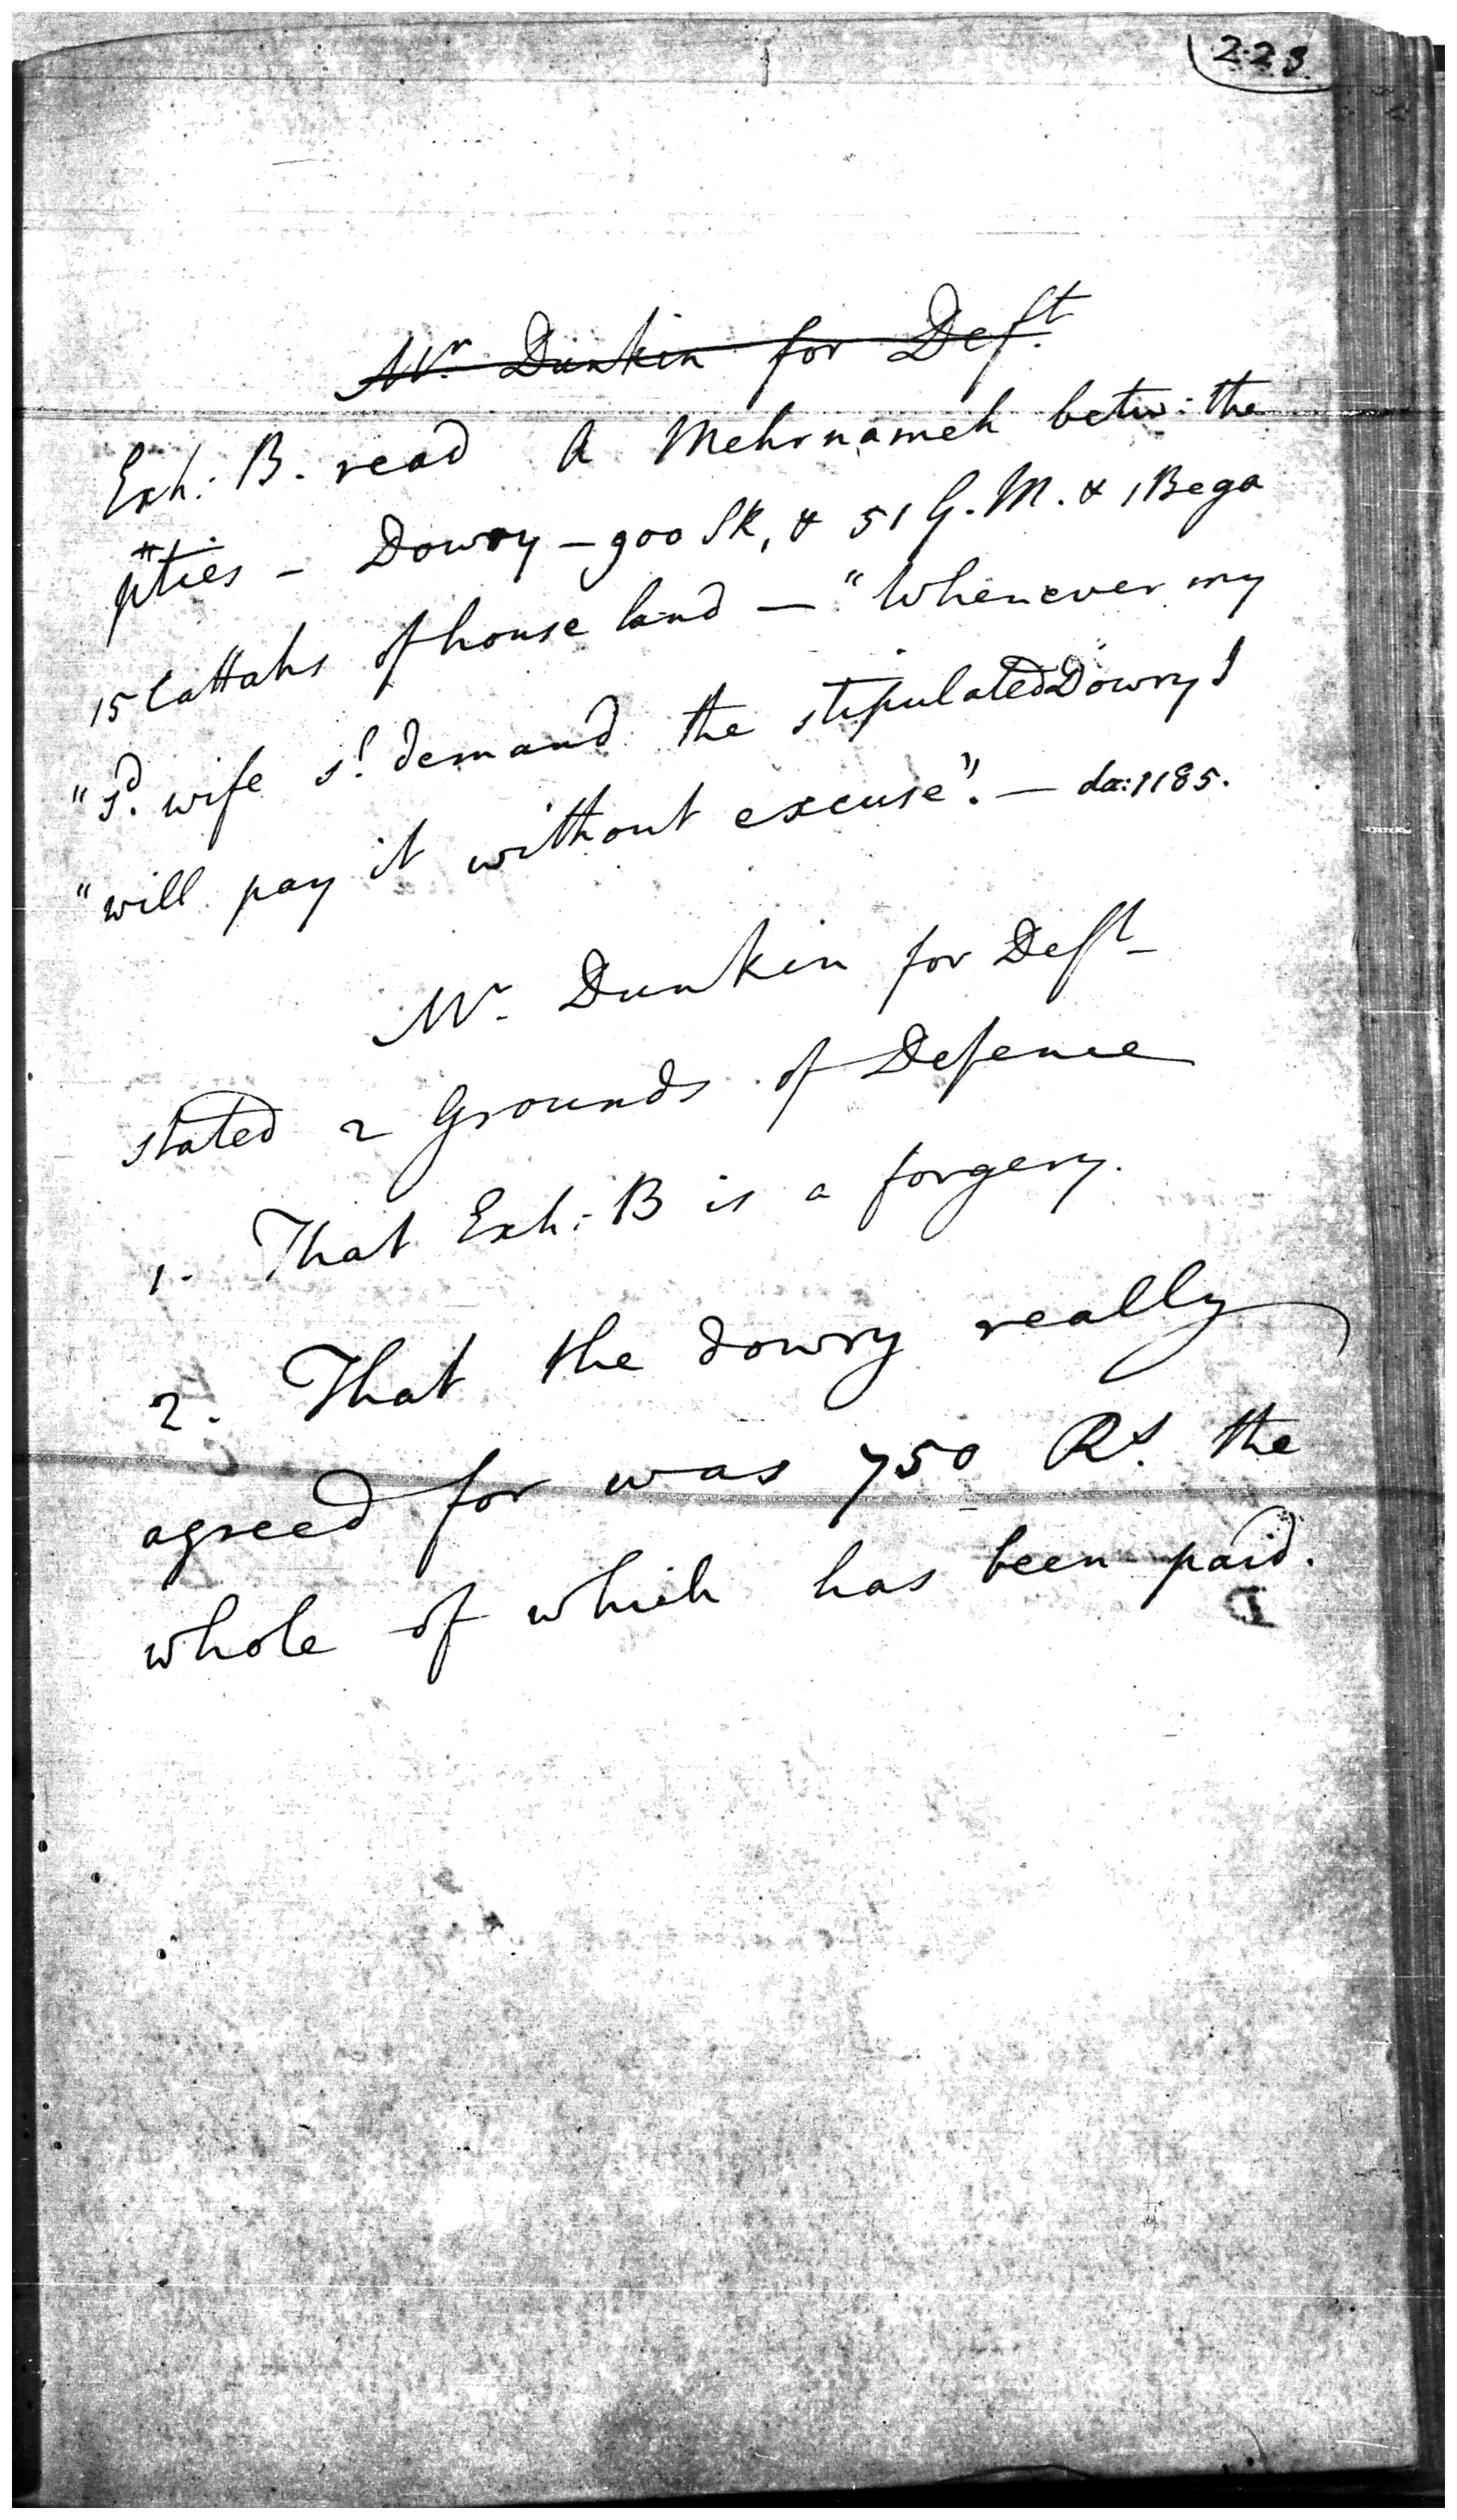 223
Mr. Dunkin for Deft.
Exh: B. read A Mehrnameh betw: the
pties - Dowry - 900 SR, & 51 G.M. & 1 Bega
15 Cattahs of house land — "Whenever my
"sd. wife sd. demand the stipulated Dowry I
"will pay it without excuse". — da: 1185.
Mr. Dunkin for Deft
stated 2 Grounds of Defence
1. That Exh: B is a forgery.
2. That the dowry really
agreed for was 750 Rs. the
whole of which has been paid.